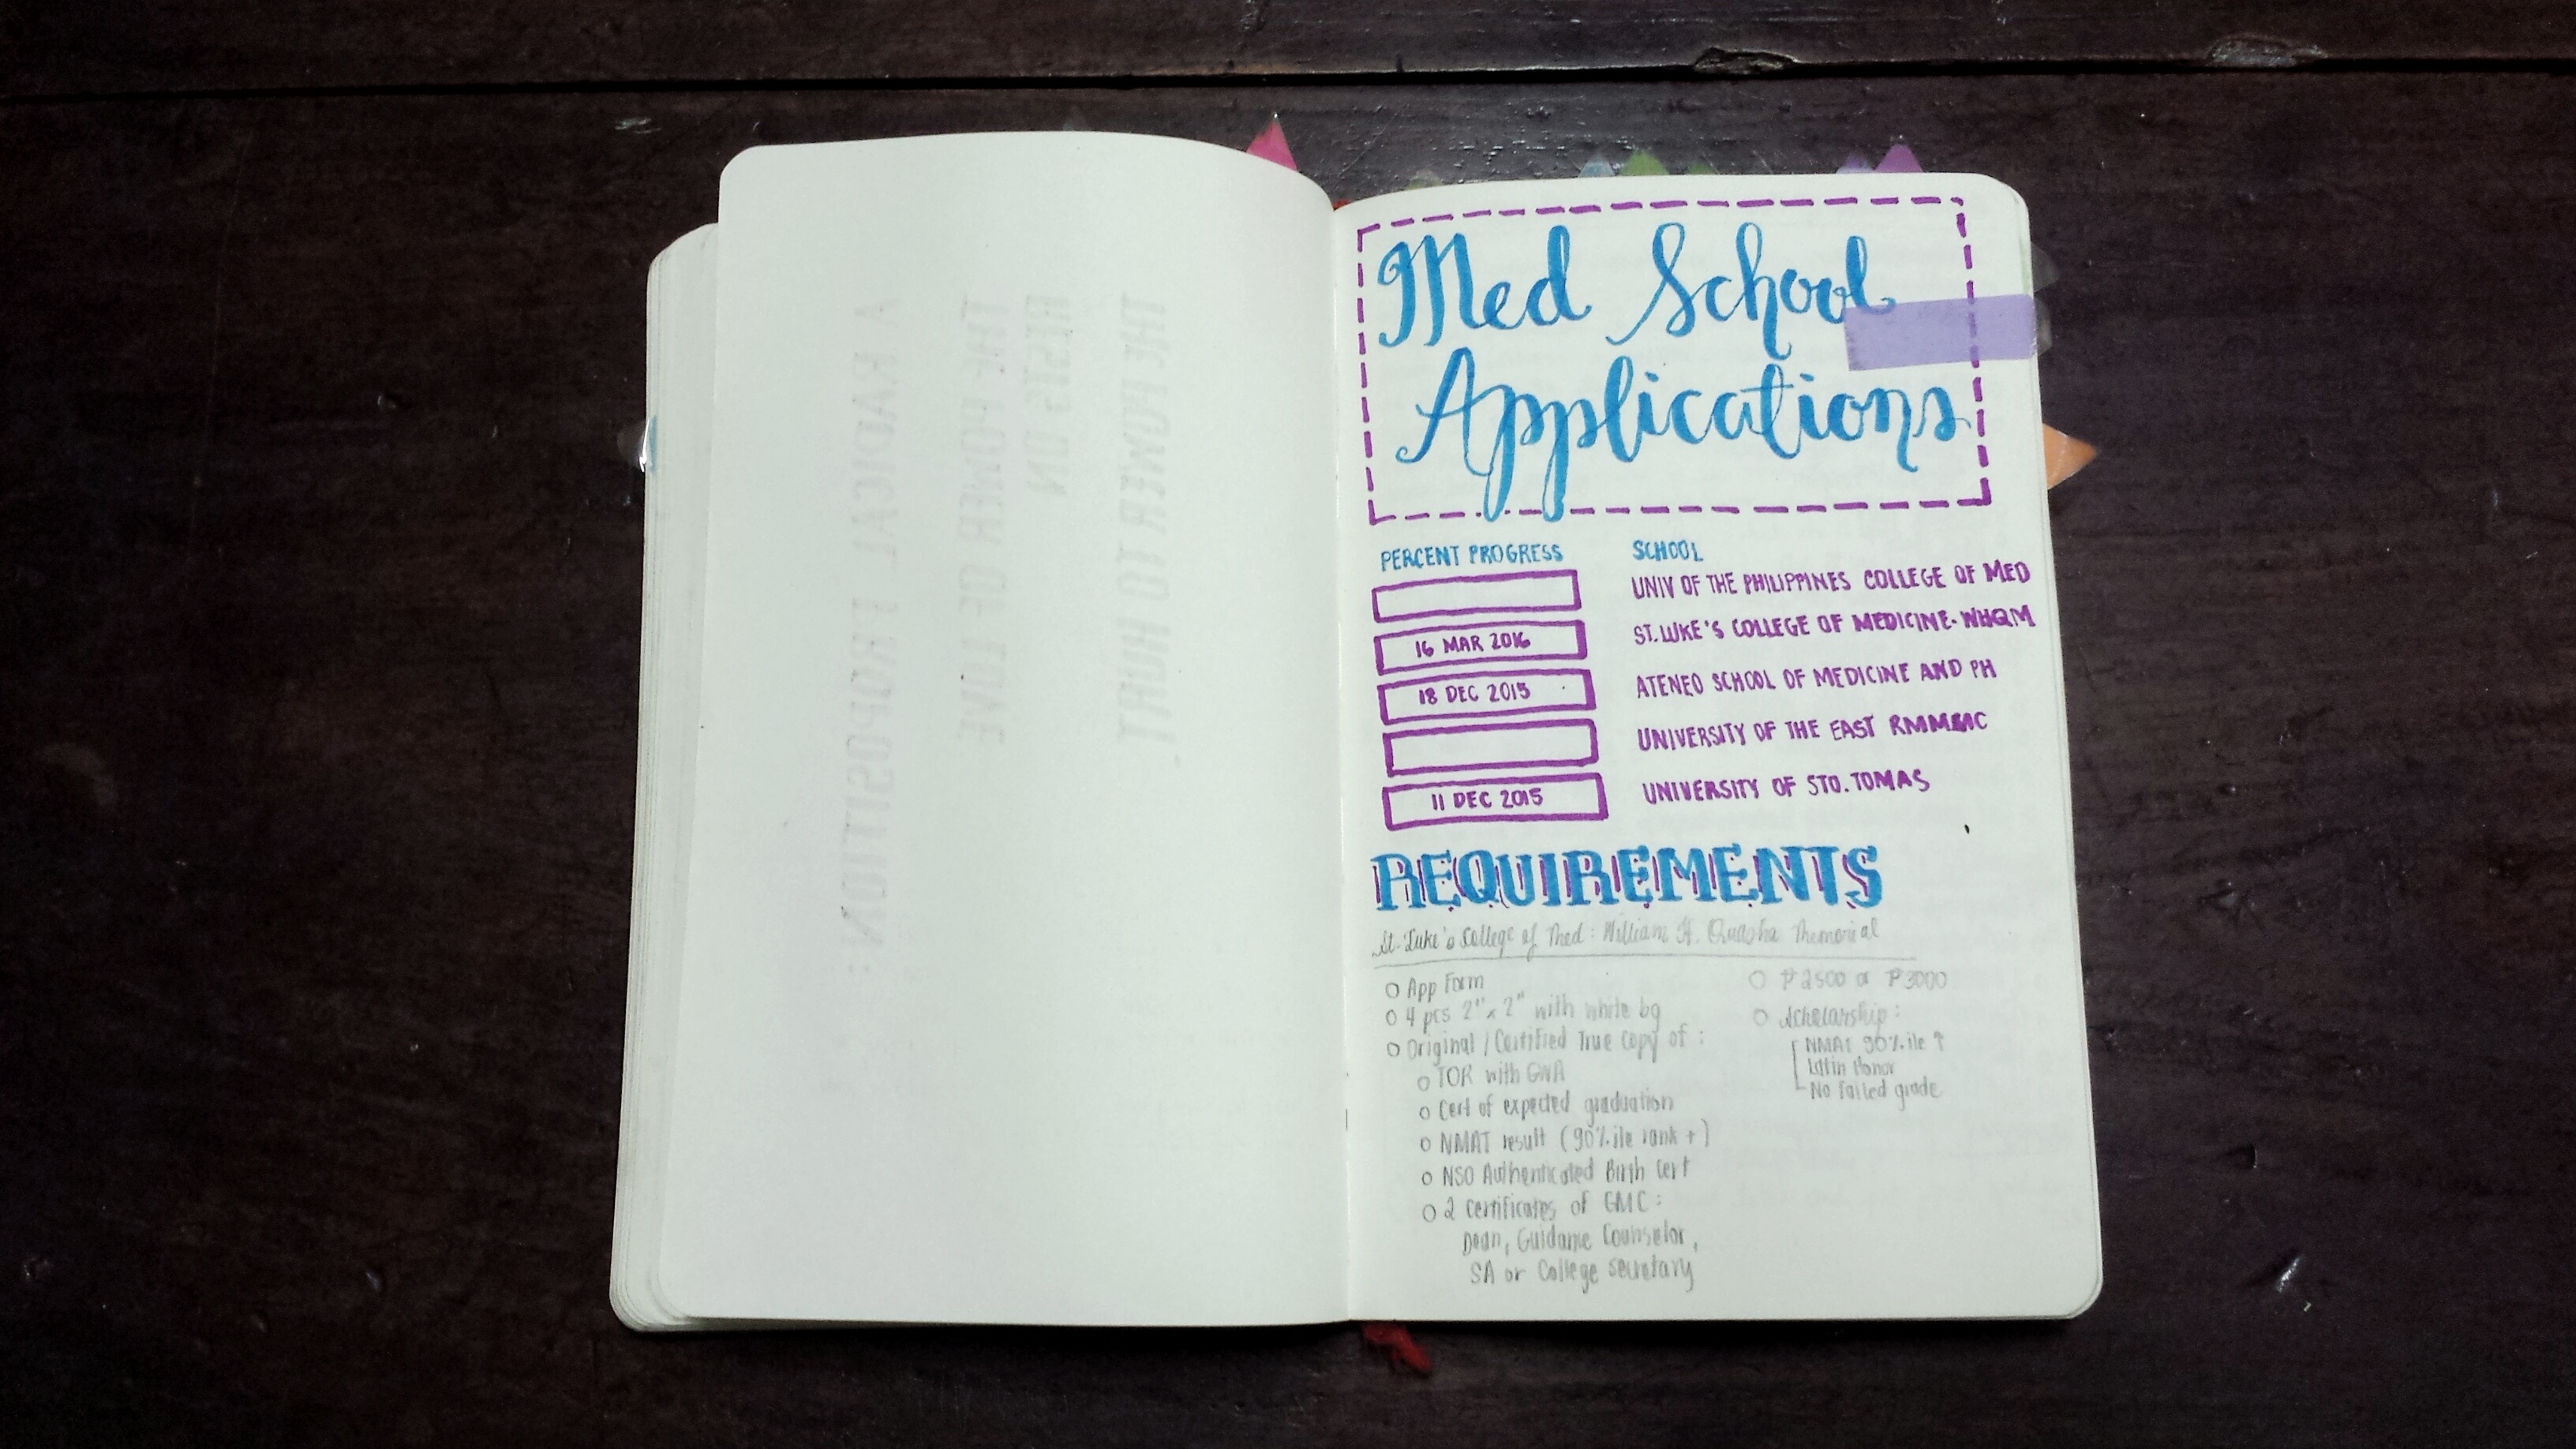 A RADICAL PROPOSITION:
THE POWER OF LOVE
RESTS ON
THE POWER TO HURT.
Med School
Applications
PERCENT PROGRESS SCHOOL
UNIV OF THE PHILIPPINES COLLEGE OF MED
16 MAR 2016 ST. LUKE'S COLLEGE OF MEDICINE-WHQM
18 DEC 2015 ATENEO SCHOOL OF MEDICINE AND PH
UNIVERSITY OF THE EAST RMMMC
11 DEC 2015 UNIVERSITY OF STO. TOMAS
REQUIREMENTS
St. Luke's College of Med: William H. Quasha Memorial
App Form
4 pcs 2"x2" with white bg
Original / Certified True Copy of:
TOR with GWA
Cert of expected graduation
NMAT result (90%ile rank +)
NSO Authenticated Birth Cert
2 Certificates of GMC:
Dean, Guidance Counselor,
SA or College Secretary
₱2500 or ₱3000
Scholarship:
NMAT 90%ile ↑
Latin Honor
No failed grade